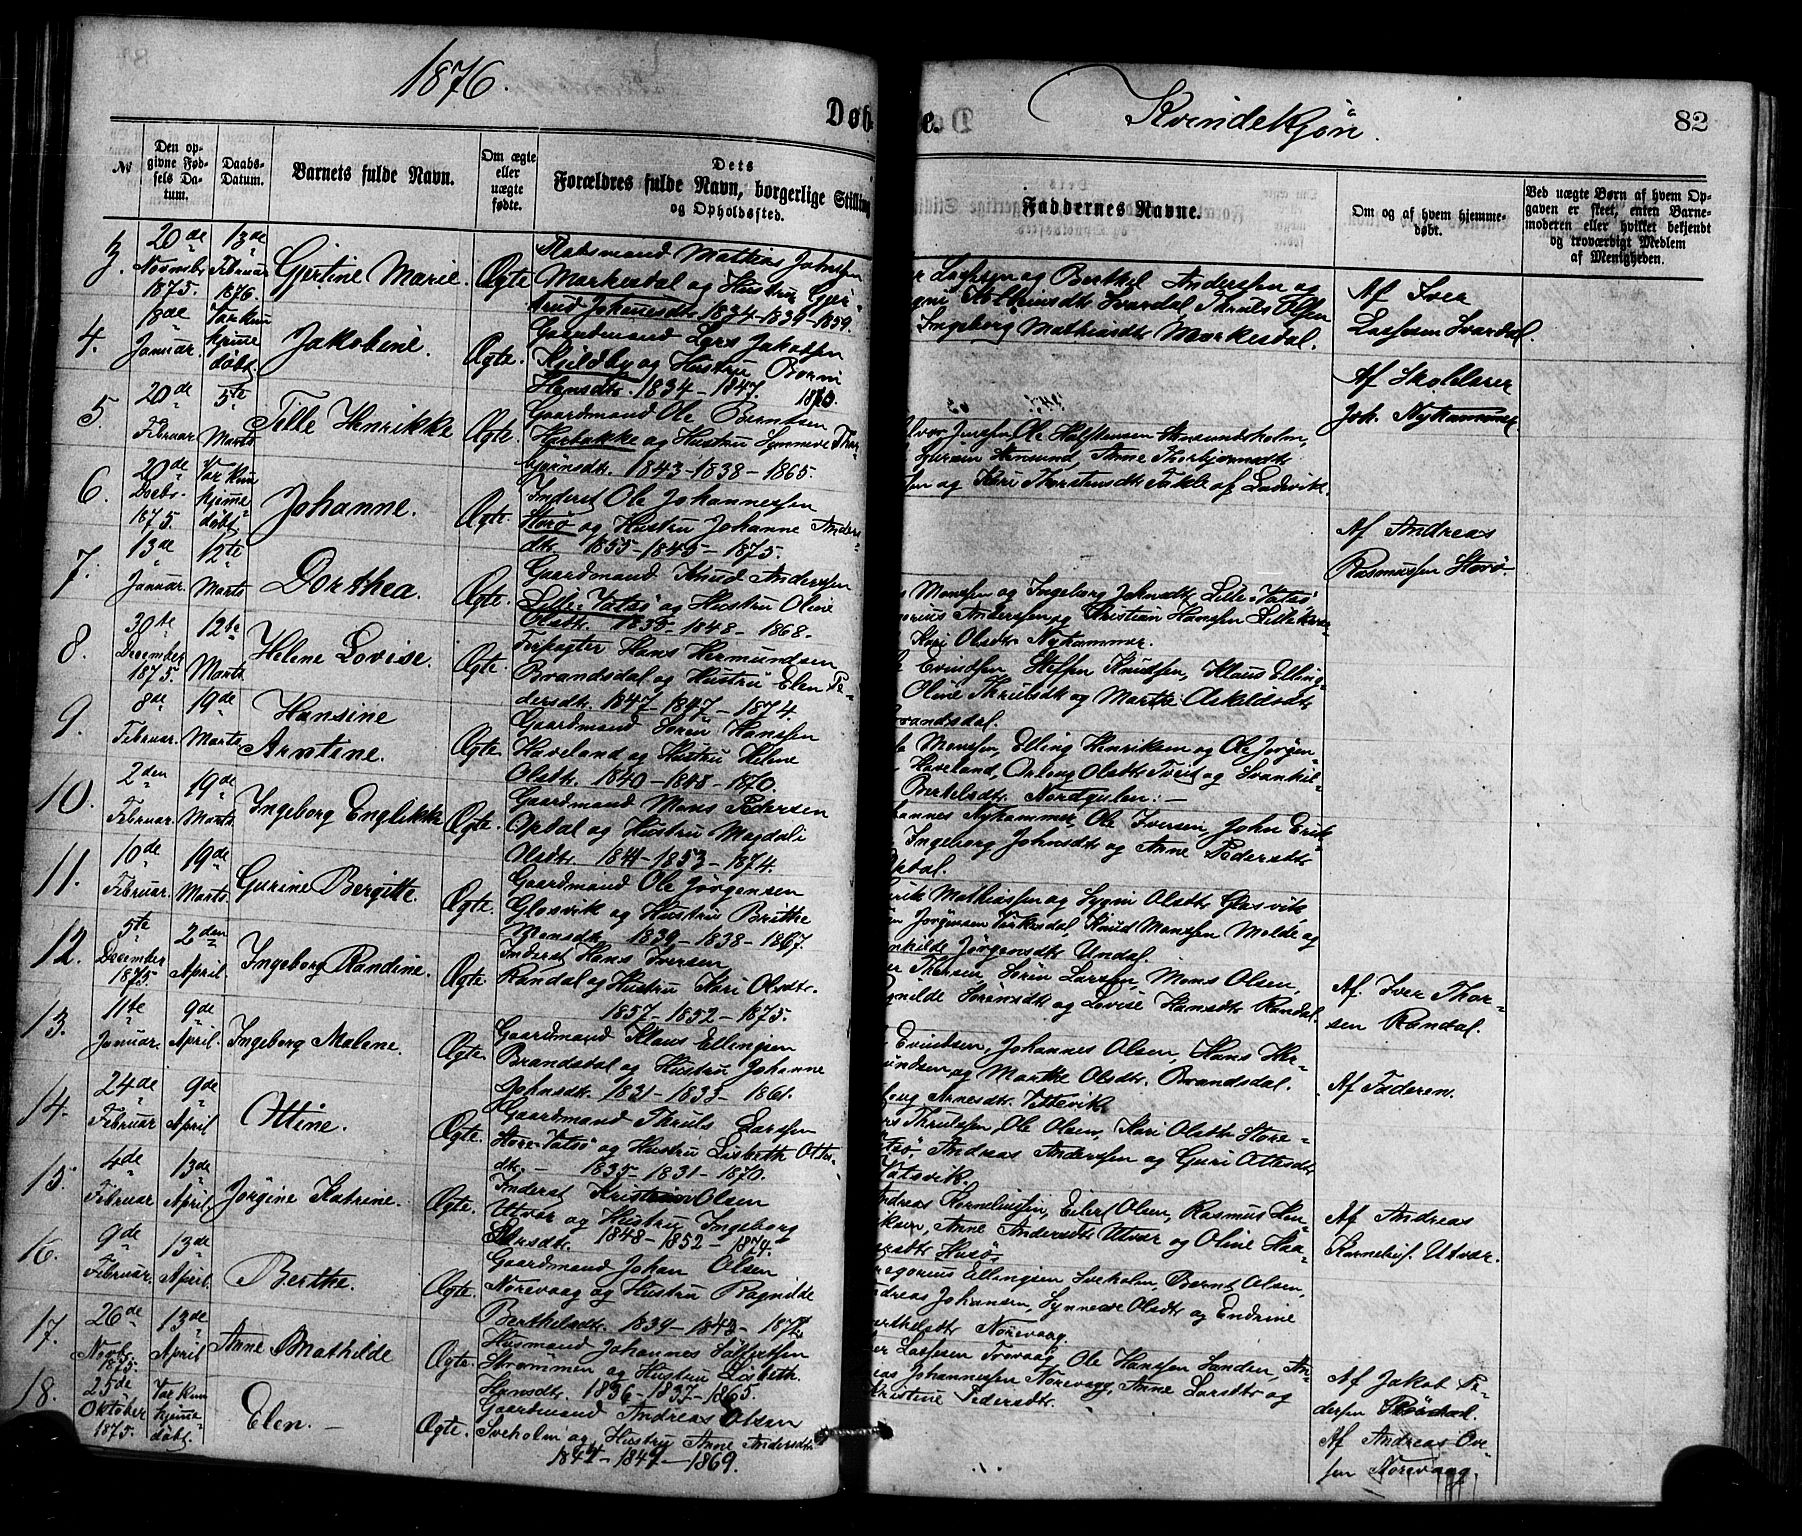 1876.
Døb
e.
Kvindekjøn.
82
No
Den opgivne Fødsels Datum.
Daabs-Datum.
Barnets fulde Navn.
Om ægte eller uægte fødte.
Dets Forældres fulde Navn, borgerlige Stilling og Opholdssted.
Faddernes Navne.
Om og af hvem hjemmedøbt.
Ved uægte Børn af hvem Opgaven er skeet, enten Barnemoderen eller hvilket bekjendt og troværdigt Medlem af Menigheden.
3. 20de Novmbr 1875. 13de Februar 1876. Gjertine Marie. Ægte
Mathias Johnsen
Markesdal og Hustru Gjer-
trud Johanesdtr. 1834-1839-1859.
Lassesen og Berthel Anderssen og
Svardal, Thruls Olsen
Ingeborg Mathiasdtr Markesdal.
Af Iver
Lassesen Svardal.
4. 18de Januar. Var kun hjemedøbt Jakobine. Ægte.
Gaardmand Lars Jakobsen
Kjeldby og Hustru Borni
Hansdtr. 1834-1847. 1873.
Af Skolelærer
Joh. Nyhammer
5. 20de Februar 5te Marts Tille Henrikke Ægte.
Gaardmand Ole Berntsen
Harbakke og Hustru Synneve Thor-
bjørnsdtr. 1843-1838-1865.
Ole Halfstensen
Anne Thorbjørnsdtr
og Kari Thorstensdtr Takle af Ladvik.
6. 20de Decbr. 1875. Var kun hjemmedøbt. Johanne. Ægte.
Inderst Ole Johannessen
Storø og Hustru Johanne Anders-
dtr. 1855-1845-1875.
Af Andreas
Rasmussen Storø.
7. 13de Januar. 12te Marts Dorthea. Ægte.
Gaardmand Knud Anderssen
Lille-Vatsø og Hustru Oline
Olsdtr. 1835-1848-1868.
Monssen og Ingeborg Johnsdtr Lille-Vatsø
Anderssen og Christian Hanssen
Kari Olsdtr Nyhammer.
8. 30te December 1875. 12te Marts Helene Lovise. Ægte.
Hans Hermundsen
Brandsdal og Hustru Elen Pe-
dersdtr. 1847-1847-1874.
Evindsen Steffen Knudsen, Klaus Elling-
Oline Thrulsdtr og Marthe Askildsdtr
Brandsdal.
9. 8de Februar. 19de Marts Hansine Arntine. Ægte
Gaardmand Sørin Hanssen
Haveland og Hustru Helene
Olsdtr. 1840-1848-1870.
Monssen, Elling Henriksen og Ole Jørgen-
Haveland, Olsdtr Tveit og
Bertelsdtr. Nordgulen:-
10. 2den Februar. 19de Marts Ingeborg Englikke Ægte.
Gaardmand Mons Pedersen
Opdal og Hustru Magdali
Olsdtr. 1844-1853-1874.
Nyhammer, Ole Iversen, John Erik-
Ingeborg Johnsdtr og Anne Pedersdtr
Opdal.
11. 10de Februar. 19de Marts Gurine Bergitte. Ægte.
Gaardmand Ole Jørgensen
Glosvik og Hustru Brithe
Monsdtr. 1839-1838-1867.
Mathiassen og Sygni Olsdtr Glosvik,
Jørgensen Knud Monssen Molde og
Jørgensdtr Undal.
12. 5te December 1875. 2den April Ingeborg Randine. Ægte.
Inderst Hans Iversen
Randal og Hustru Kari Olsdtr.
1857-1852-1875.
Thorsen, Sørin Larssen, Mons Olsen,
Sørensdtr og Lovise Hansdtr Randal.
Af. Iver Thor-
sen Randal.
13. 11te Januar. 9de April. Ingeborg Malene. Ægte.
Gaardmand Klaus Ellingsen
Brandsdal og Hustru Johanne
Johnsdtr. 1831-1833-1861.
Evindsen, Johannes Olsen, Hans Her-
mundsen og Marthe Olsdtr. Brandsdal.
Af Faderen.
14. 24de Februar 9de April Ottine. Ægte.
Gaardmand Thruls Larssen
Store-Vatsø og Hustru Lisbeth Ottes-
dtr. - 1835-1831-1870.
Arnesdtr.
Thrulssen, Ole Olsen, Kari Olsdtr Store-
Andreas Anderssen og Guri Ottesdtr
Vatsvik.
15. 4de Februar 13de April. Jørgine Katrine. Ægte.
Inderst Kristian Olsen
Utvær og Hustru Ingeborg
1848-1852-1874.
Andreas Korneliussen, Eiler Olsen, Rasmus Hen-
riksen, Anne Andersdtr Utvær og Oline Haa-
Husø.
Af Andreas
Korneliuss. Utvær.
16. 9de Februar. 13de April. Berthe. Ægte.
Gaardmand Johan Olsen
Norevaag og Hustru Ragnilde
Berthelsdtr. 1839-1843-1872
Gregorius Ellingsen Sveholm, Bernt Olsen,
Andreas Johansen, Synneve Olsdtr og Endrine
Berthelsdtr Norevaag.
17. 26de Novbr. 1875. 13de April Anne Mathilde Ægte.
Husmand Johannes
Strømmen og Hustru Lisbeth
Hansdtr. 1836-1837-1865.
Lassesen Ole Hanssen Sanden, An-
dreas Johannessen Norevaag, Anne Larsdtr og
Kristine Pedersdtr.
Af Jakob Pe-
dersen
18. 25de Oktober 1875. Var kun hjemmedøbt. Elen. - Ægte.
Gaardmand Andreas Olsen
Sveholm og Hustru Anne Andersdtr
1844-1847-1869.
Af Andreas
Norevaag.